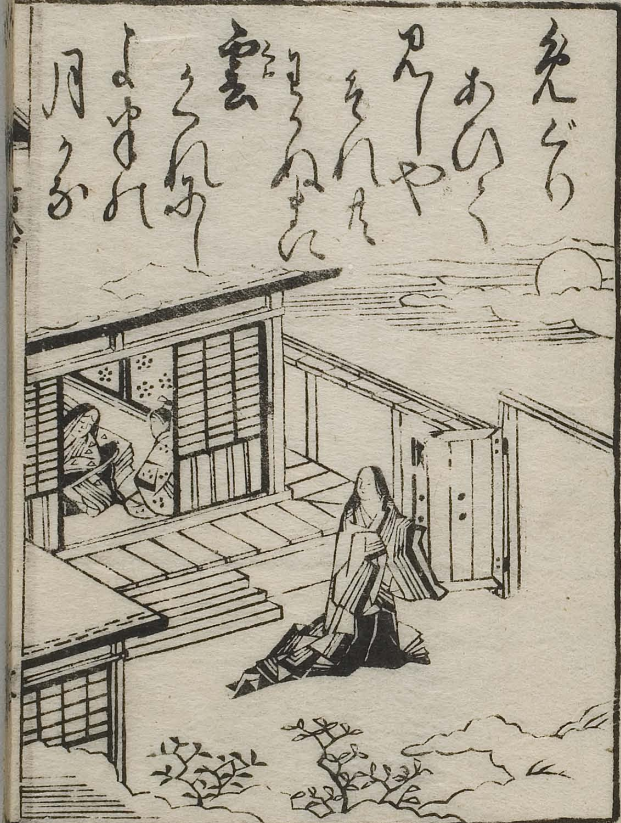 めぐり
あひて
見しや
それ共
わかぬまに
雲
かくれにし
よ半の
月かな